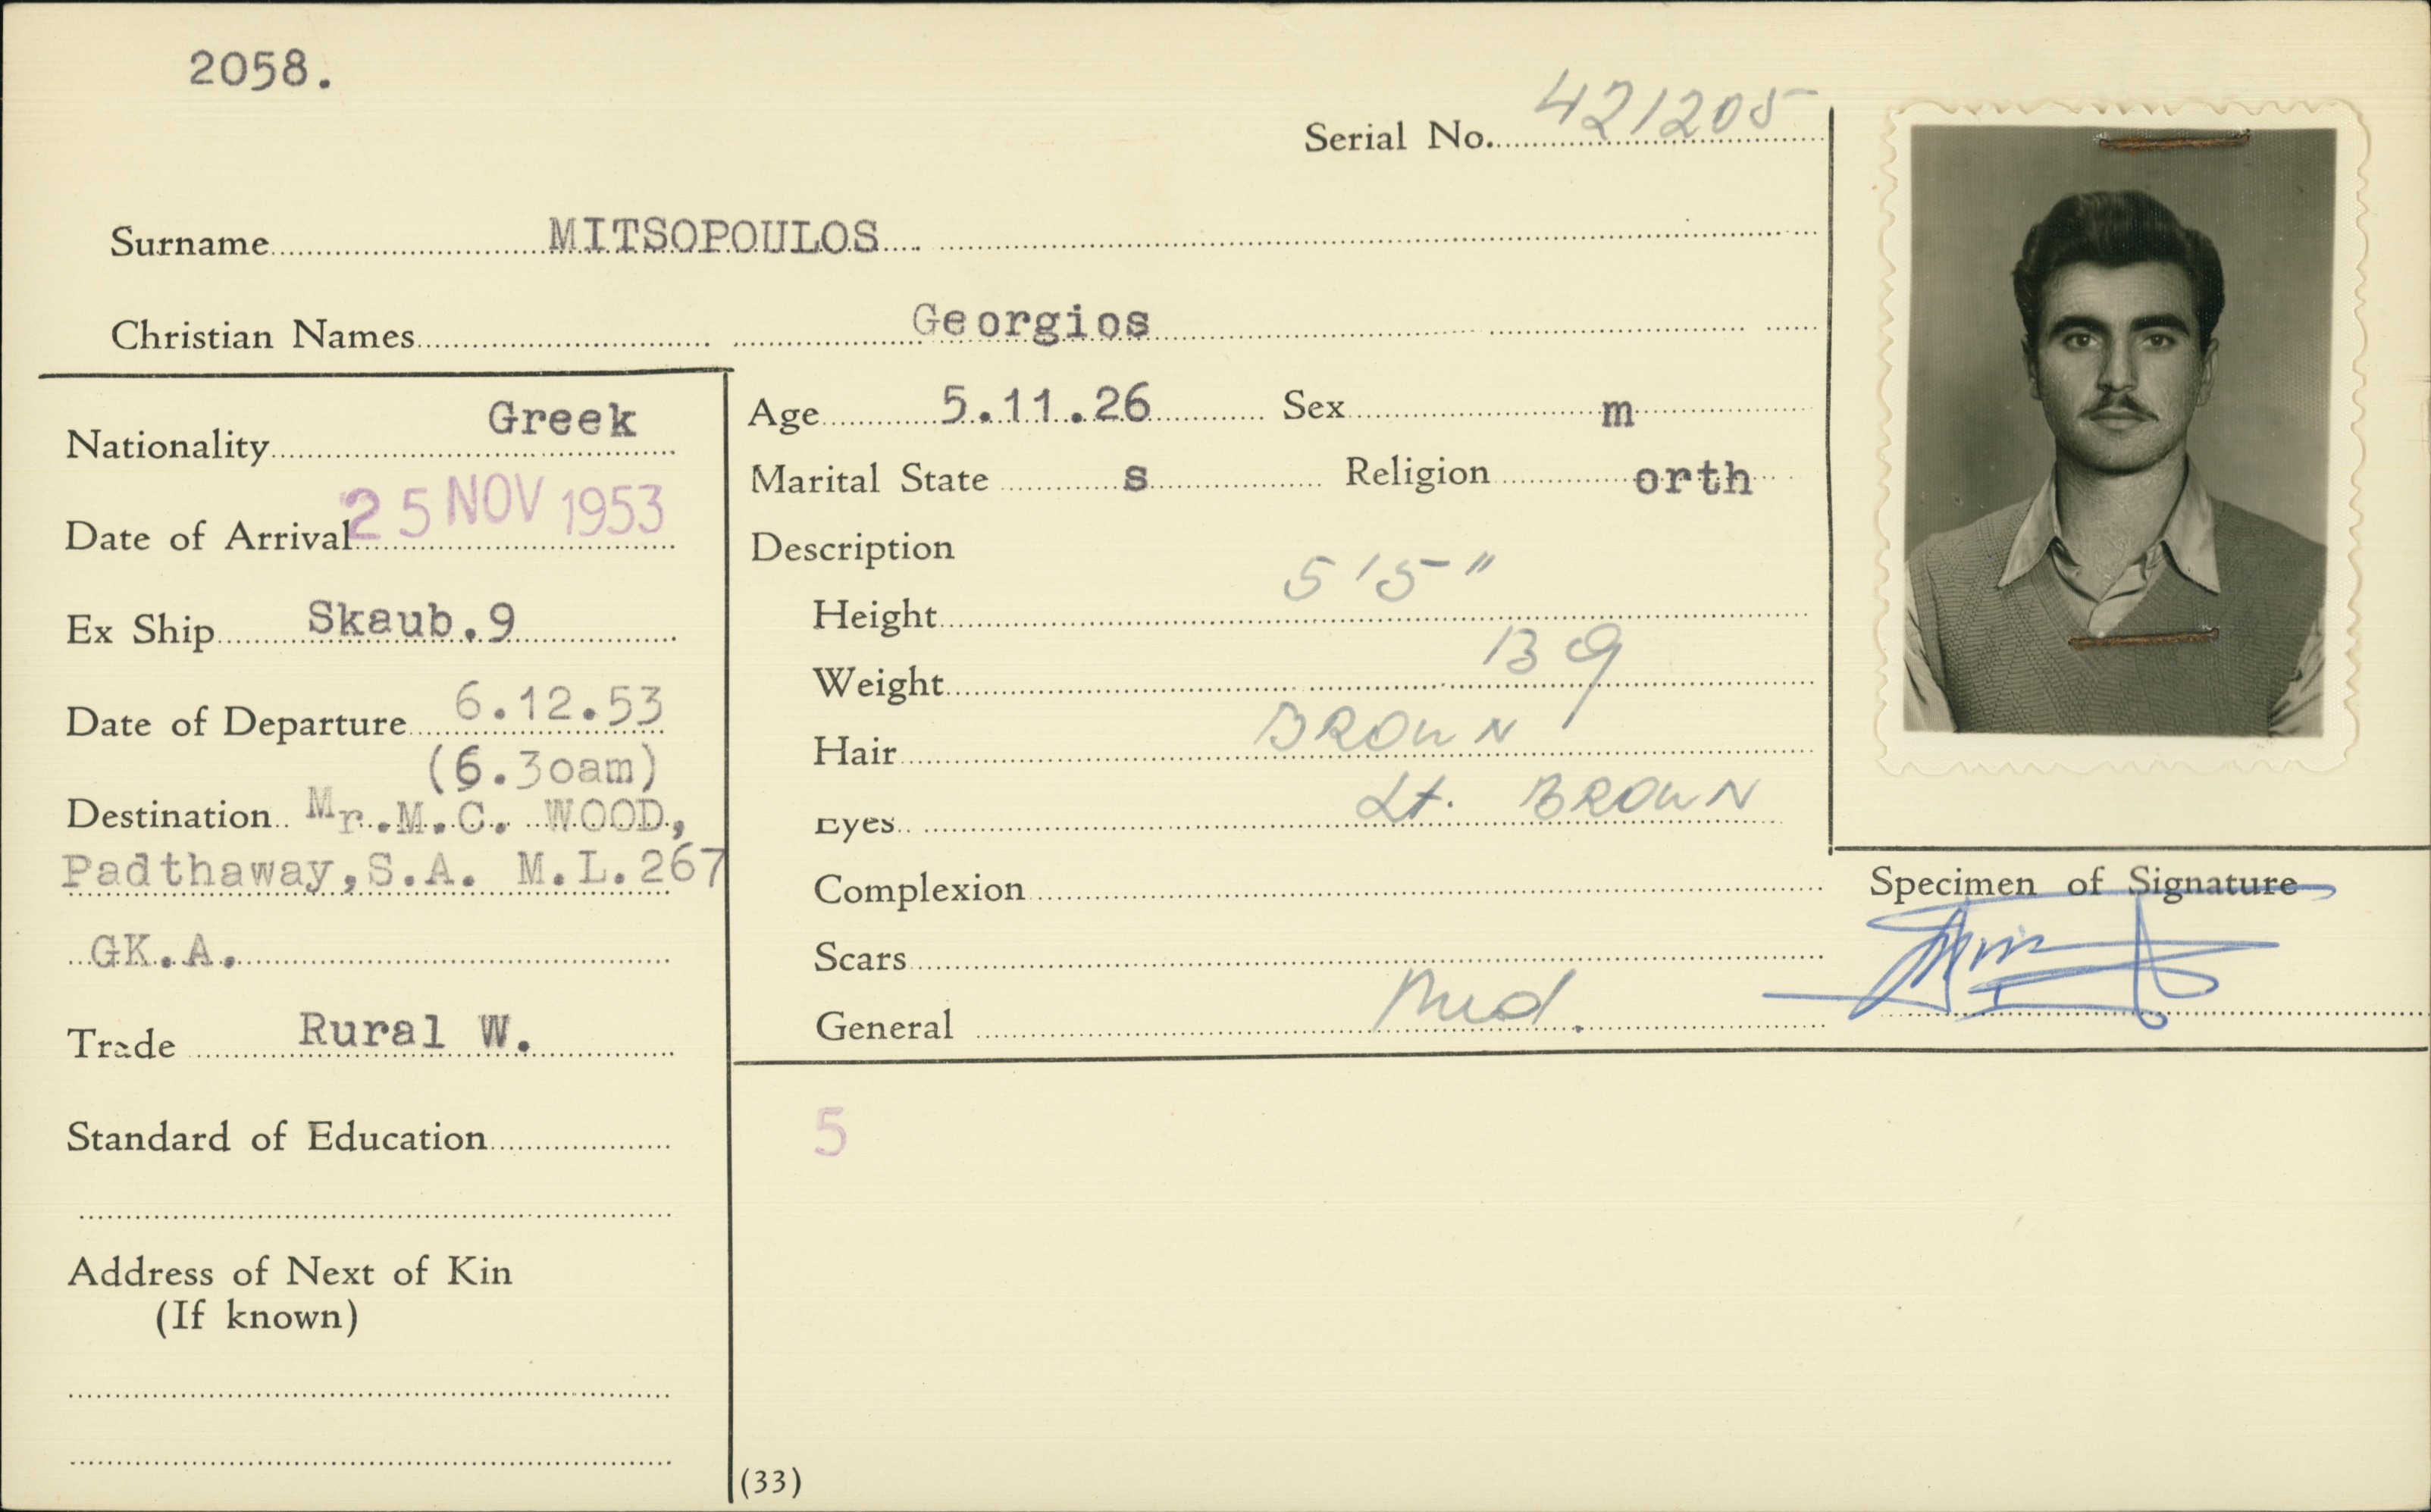 2058.
Serial No. 421205
Surname MITSOPOULOS
Christian Names Georgios
Nationality Greek
Date of Arrival 25 NOV 1953
Ex Ship Skaub.9
Date of Departure 6.12.53
(6.3oam)
Destination Mr.M.C. WOOD,
Padthaway,S.A. M.L.267
GK.A.
Trade Rural W.
Standard of Education
Address of Next of Kin
(If known)
Age 5.11.26 Sex m
Marital State s Religion orth
Description
Height 5'5"
Weight
Hair BROWN
Eyes Lt. BROWN
Complexion
Scars
General Med.
5
(33)
Specimen of Signature